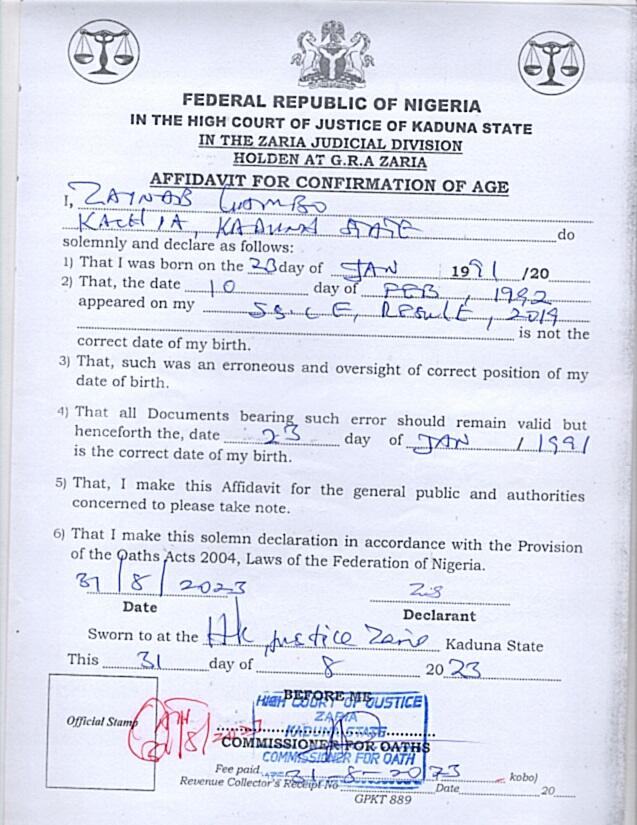 FEDERAL REPUBLIC OF NIGERIA
IN THE HIGH COURT OF JUSTICE OF KADUNA STATE
IN THE ZARIA JUDICIAL DIVISION
HOLDEN AT G.R.A ZARIA
AFFIDAVIT FOR CONFIRMATION OF AGE
I, ZAYNAB GAMBO
KACHIA, KADUNA STATE do
solemnly and declare as follows:
1) That I was born on the 23 day of JAN 1991 /20
2) That, the date 10 day of FEB, 1992
appeared on my S.S.C.E, RESULT, 2019
is not the
correct date of my birth.
3) That, such was an erroneous and oversight of correct position of my
date of birth.
4) That all Documents bearing such error should remain valid but
henceforth the, date 23 day of JAN / 1991
is the correct date of my birth.
5) That, I make this Affidavit for the general public and authorities
concerned to please take note.
6) That I make this solemn declaration in accordance with the Provision
of the Oaths Acts 2004, Laws of the Federation of Nigeria.
31/8/2023
Date
Declarant
Sworn to at the justice Zaria Kaduna State
This 31 day of 8 2023
Official Stamp
BEFORE ME
HIGH COURT OF JUSTICE
ZARIA
KADUNA STATE
COMMISSIONER FOR OATHS
COMMISSIONER FOR OATH
Fee paid kobo)
31-8-2023
Revenue Collector's Receipt No Date 20
GPKT 889